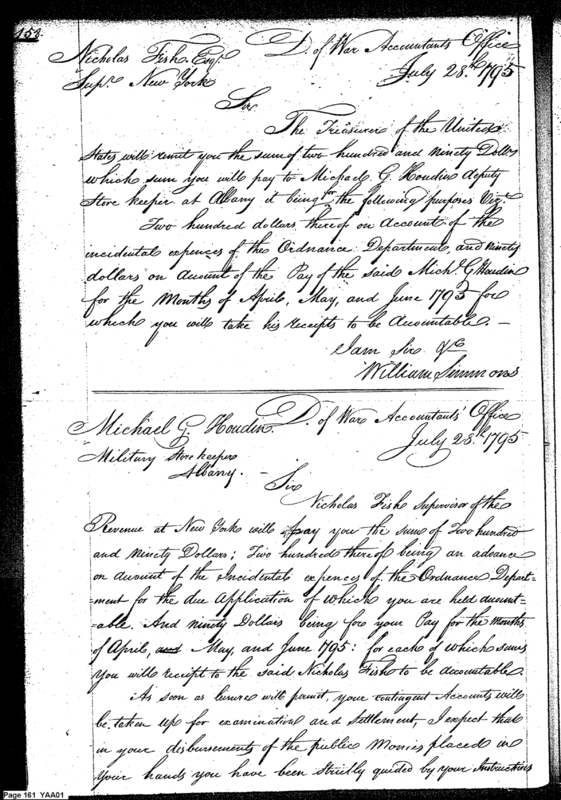 158
Nicholas Fish Esqr. D. of War Accountants Office
Supr. New York July 28th 1795
Sir
The Treasurer of the United
States will remit you the sum of two hundred and ninety Dollrs
which sum you will pay to Michael G. Houdin deputy
Store keeper at Albany it being for the following purposes Vizt
Two hundred dollars thereof on Account of the
incidental expences of the Ordnance Department, and ninety
dollars on Account of the Pay of the said Michl. G Houdin
for the Months of April, May, and June 1795 for
which you will take his receipts to be Accountable. –
I am Sir &c
William Simmons
Michael G. Houdin D. of War Accountants' Office
Military Store keeper July 28th 1795
Albany. -
Sir
Nicholas Fish Supervisor of the
Revenue at New York will pay you the sum of Two hundred
and Ninety Dollars; Two hundred thereof being an advance
on account of the Incidental expences of the Ordnance Depart=
=ment for the due Application of which you are held account=
=able. And ninety Dollars being for your Pay for the Months
of April, and May, and June 1795: for each of which sums
you will receipt to the said Nicholas Fish to be accountable.
As soon as leisure will permit, your contingent Accounts will
be taken up for examination and settlement, I expect that
in your disbursements of the public Monies placed in
your hands you have been strictly guided by your Instructions
Page 161 YAA01